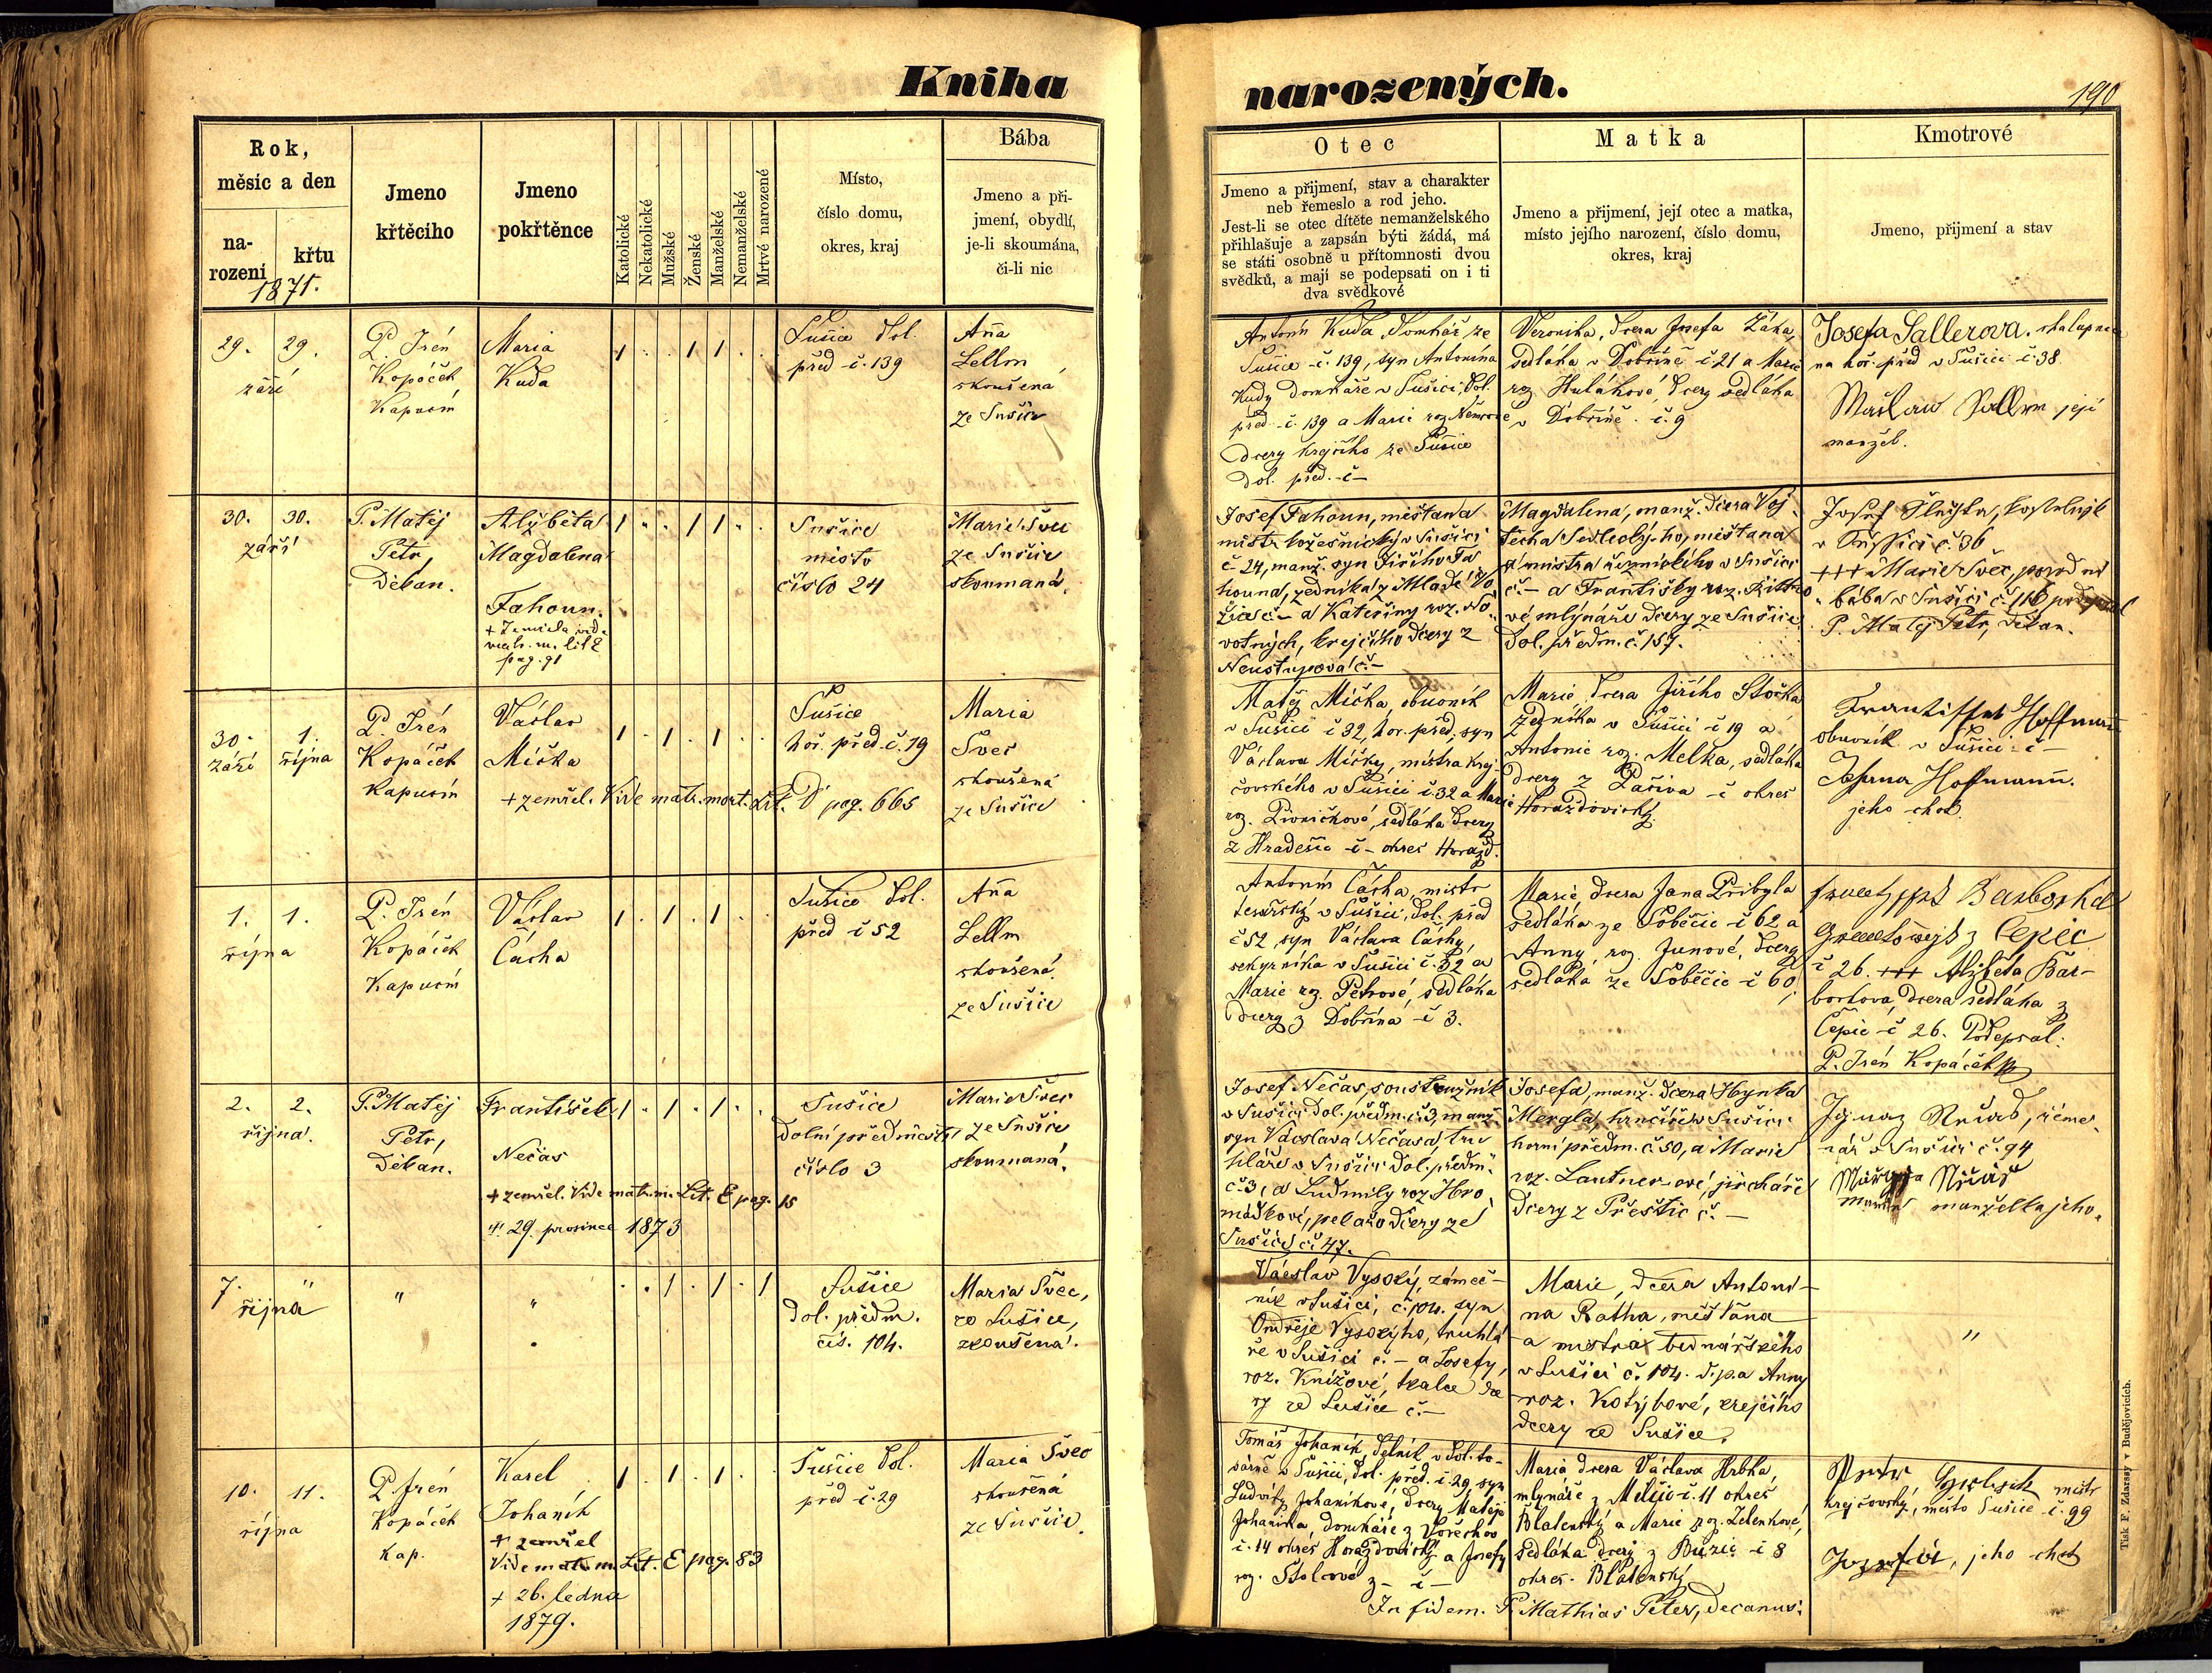 Kniha
narozených.
190
Rok,
měsíc a den
na-
rození
křtu
1871.
Jmeno
křtěcího
Jmeno
pokřtěnce
Katolické
Nekatolické
Mužské
Ženské
Manželské
Nemanželské
Mrtvé narozené
Místo,
číslo domu,
okres, kraj
Bába
Jmeno a při-
jmení, obydlí,
je-li skoumána,
či-li nic
Otec
Jmeno a přijmení, stav a charakter
neb řemeslo a rod jeho.
Jest-li se otec dítěte nemanželského
přihlašuje a zapsán býti žádá, má
se státi osobně u přítomnosti dvou
svědků, a mají se podepsati on i ti
dva svědkové
Matka
Jmeno a přijmení, její otec a matka,
místo jejího narození, číslo domu,
okres, kraj
Kmotrové
Jmeno, přijmení a stav
29. 29.
září
P. Irén
Kopáček
Kapucín
Maria
Kuda
1 . . 1 1 . .
Sušice dol.
před č. 139
Aña
Sellm
skoušená
ze Sušice
Antonín Kuda, domkář ze
Sušice č. 139, syn Antonína
Kudy domkáře v Sušici, dol.
před. č. 139 a Marie roz. Němcové
dcery krejčího ze Sušice
dol. před. č –
Veronika, dcera Josefa Žáka,
sedláka v Dobříně č. 21 a Marie
roz. Hulákové, dcery sedláka
v Dobříně č. 9
Josefa Sallerova. chalupnice
na hoř. před v Sušici č. 38.
její
manžel.
30. 30.
září
P. Matěj
Petr,
Děkan.
Alžběta
Magdalena
Fahoun.
+ Zemřela vide
matr. m. lit E
pag. 91
1 . . 1 1 . .
Sušice
město
číslo 24
Marie Švec
ze Sušice
skoumaná.
Josef Fahoun, měšťan a
mistr kožešnický v Sušici
č 24, manž. syn Jiřího Fa
houna, zedníka z Mladé Vo
žice č – a Kateřiny roz. No
votných, krejčího dcery z
Neustupova č. –
Magdalena, manž. dcera Voj
těcha Sedleckýho, měšťana
a mistra řeznického v Sušici
č. – a Františky roz. Kittro
vé mlynáře dcery ze Sušice
dol. předm. č. 157.
kostelník
v Sušici č. 36
+++ Marie Švec, porodní
bába v Sušici č. 116 podepsal
P. Matěj Petr, Děkan.
30. 1.
září října
P. Irén
Kopáček
Kapucín
Václav
Mička
+ zemřel. Vide matr. mort. Lit. D pag. 665
1 . 1 . 1 . .
Sušice
hoř. před. č. 19
Maria
Švec
skoušená
ze Sušice
Matěj Mička, obuvník
v Sušici č 32, hor. před. syn
Václava Mičky, mistra krej-
čovského v Sušici č. 32 a Marie
roz. Pivničkové, sedláka dcery
z Hradešic č – okres Horažd.
Marie dcera Jiřího Stočka
zedníka v Sušici č 19 a
Antonie roz. Melka, sedláka
dcery z Pačiva č okres
Horažďovický.
Frantisset Hoffmañ
obuvník v Sušici č –
Johana Hoffmann.
jeho choť
1. 1.
října
P. Irén
Kopáček
Kapucín
Václav
Čácha
1 . 1 . 1 . .
Sušice dol.
před č 52
Aña
Sellm
skoušená
ze Sušice
Antonín Čácha, mistr
tesařský v Sušici, dol. před
č 52, syn Václava Čáchy,
sekyrníka v Sušici č. 52 a
Marie roz. Petrové, sedláka
dcery z Dobřína č 3.
Marie dcera Jana Přibyla
sedláka ze Soběšic č 62 a
Anny, roz. Junové, dcery
sedláka ze Soběšic č 60
z Čepic
č 26. +++ Alžběta Bar-
bortová dcera sedláka z
Čepic č 26. Podepsal.
P. Irén Kopáček
2. 2.
října.
P. Matěj
Petr,
Děkan.
František
Nečas
+ zemřel. Vide matr. m. Lit. E pag. 15
29. prosince 1873
1 . 1 . 1 . .
Sušice
dolní předměstí
číslo 3
Marie Švec
ze Sušice
skoumaná.
Josef Nečas, soustružník
v Sušici dol. předm. č. 3, manž.
syn Václava Nečasa, tru
hláře v Sušici dol. předm.
č. 3, a Ludmily roz Hro
mádkové, pekaře dcery ze
Sušice č 47.
Josefa, manž. dcera Hynka
Mergla, hrnčíře v Sušici
horní předm. č. 50, a Marie
roz. Lautnerové, jircháře
dcery z Přeštic č. –
Ignaz řeme-
nář v Sušici č. 94
manželka jeho.
7. "
října
"
"
. . 1 . 1 . 1
Sušice
dol. předm.
čís. 104.
Maria Švec,
ze Sušice,
zkoušená.
Václav Vysoký, zámeč-
ník v Sušici, č. 104. syn
Ondřeje Vysokýho, truhlá-
ře v Sušici č. – a Josefy,
roz. Knížové, tkalce dce
ry ze Sušice č. –
Marie, dcera Antoni-
na Ratha, měšťana
a mistra bednářského
v Sušici č. 104. d. p. a Anny
roz. Kotýbové, krejčího
dcery ze Sušice.
"
10. 11.
října
P. Irén
Kopáček
Kap.
Karel
Johanik
+ zemřel
Vide matr. m. Lit. E pag. 83
+ 26. ledna
1879.
1 . 1 . 1 . .
Sušice dol.
před č. 29
Maria Švec
skoušená
ze Sušice.
Tomáš Johanik, dělník v dol. to-
várně v Sušici, dol. před. č. 29 syn
Ludvity Johanikové, dcery Matěje
Johanika, domkáře z Vořechov
č. 14 okres Horažďovický a Josefy
roz. Stolcové z – č –
Maria dcera Václava Hrbka,
mlynáře z Mečic č. 11 okres
Blatenský a Marie roz. Zelenkové,
sedláka dcery z Buzic č 8
okres. Blatenský
mistr
krejčovský, město Sušice č. 99
Josefa, jeho choť
In fidem. P. Mathias Peter, decanus.
Tisk F. Zdarssy v Budějovicích.